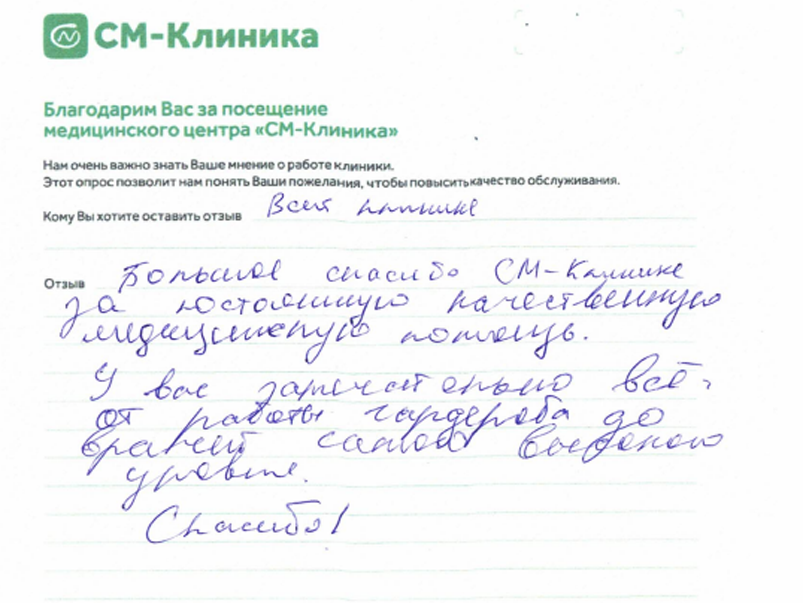 СМ-Клиника
Благодарим Вас за посещение
медицинского центра «СМ-Клиника»
Нам очень важно знать Ваше мнение о работе клиники.
Этот опрос позволит нам понять Ваши пожелания, чтобы повысить качество обслуживания.
Кому Вы хотите оставить отзыв Всей клинике
Отзыв Большое спасибо СМ-Клинике
за постоянную качественную
медицинскую помощь.
У вас замечательно всё -
от работы гардероба до
врачей самого высокого
уровня.
Спасибо!